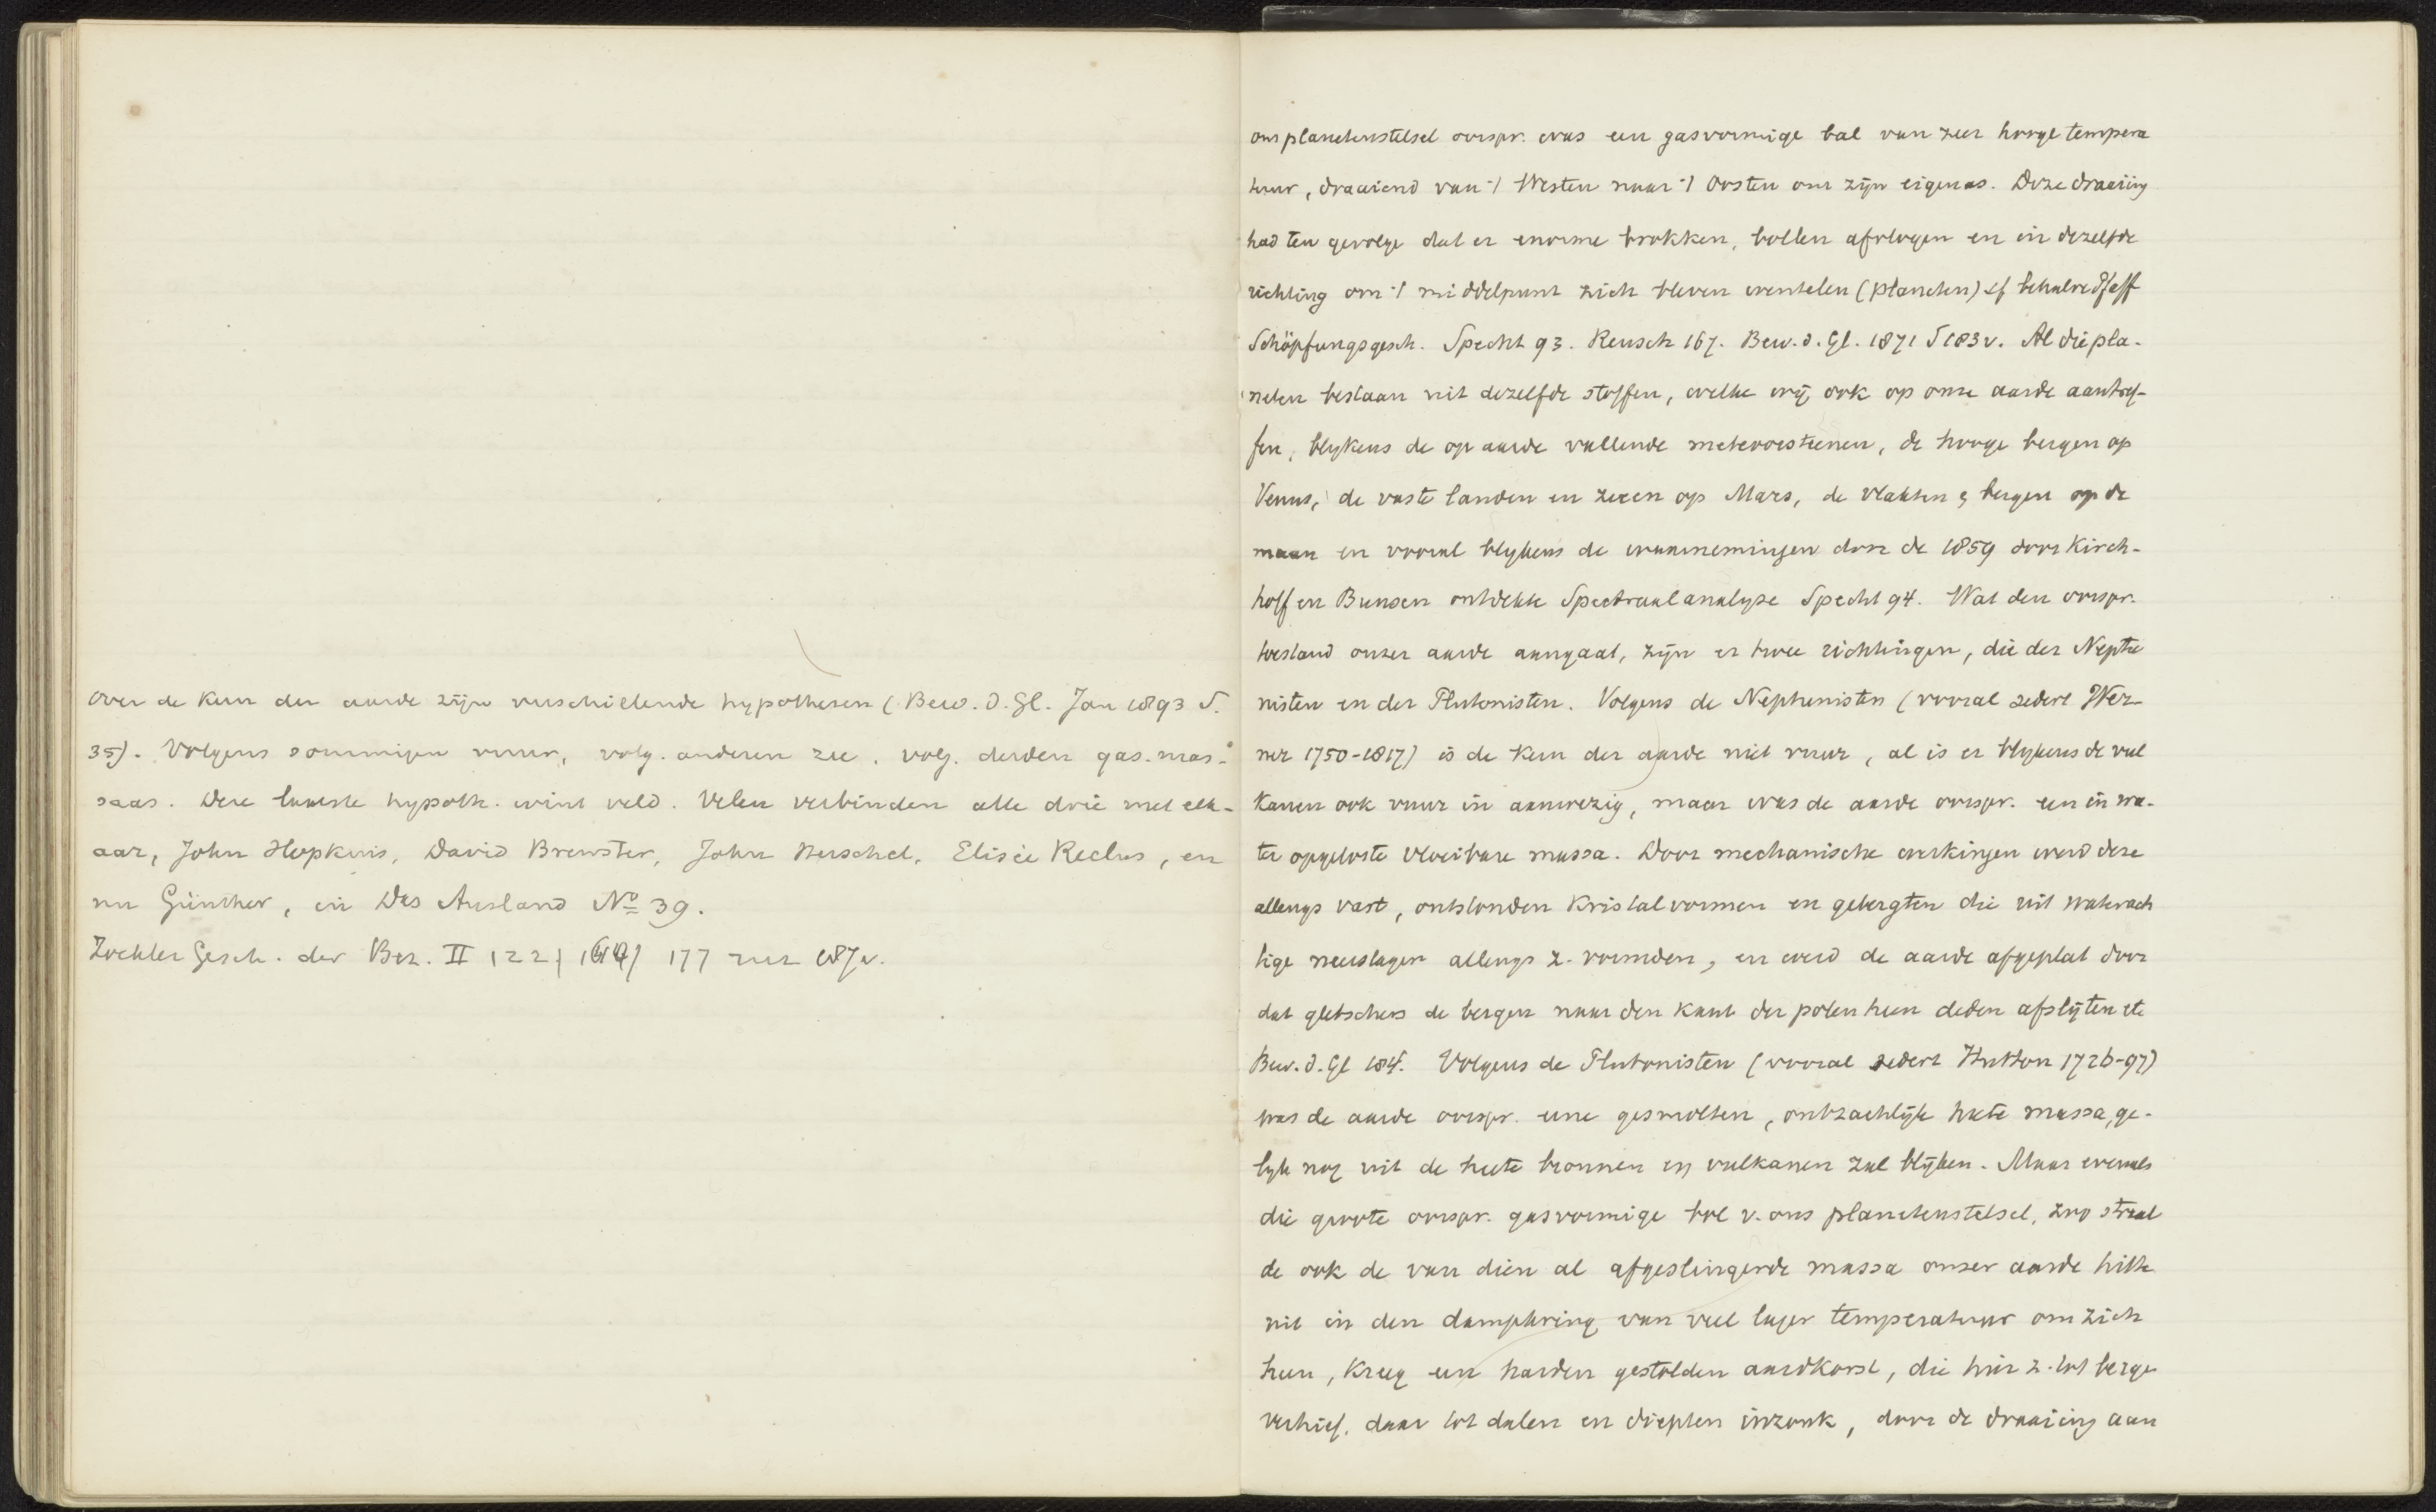 over de kern der aarde zijn verschillende hypothesen (Bew. d. Gl. Jan 1893 S.
35). Volgens sommigen vuur, volg. anderen zee, volg. derden gas-mas-
saas. Deze laatste hypoth. wint veld. Velen verbinden alle drie met elk-
aar, John Hopkins, David Brewster, John Herschel, Elisée Reclus, en
nu Günther, in Das Ausland No 39.
Zockler Gesch. der Bez. II 122 177 187v.
ons planetenstelsel oorspr. was een gasvormige bal van zeer hooge tempera
tuur, draaiend van 't Westen naar 't Oosten om zijn eigen as. Deze draaiing
had ten gevolge dat er enorme brokken, bollen afvlogen en in dezelfde
richting om 't middelpunt zich bleven wentelen (planeten) cf behalve Pfaff
Schöpfungsgesch. Specht 93. Reusch 167. Bew. d. Gl. 1871 S 183v. Al die pla-
neten bestaan uit dezelfde stoffen, welke wij ook op onze aarde aantref-
fen, blijkens de op aarde vallende meteoorsteenen, de hooge bergen op
Venus, de vaste landen en zeeen op Mars, de vlakten & bergen op de
maan en vooral blijkens de waarnemingen door de 1859 door Kirch-
hoff en Bunsen ontdekte Spectraalanalyse Specht 94. Wat den oorspr.
toestand onzer aarde aangaat, zijn er twee richtingen, die der Neptu
nisten en der Plutonisten. Volgens de Neptunisten (vooral sedert Wer-
ner 1750-1817) is de kern der aarde niet vuur, al is er blijkens de vul
kanen ook vuur in aanwezig, maar was de aarde oorspr. een in wa-
ter opgeloste vloeibare massa. Door mechanische werkingen werd deze
allengs vast, ontstonden kristalvormen en gebergten die uit waterach
tige neerslagen allengs z. vormden, en werd de aarde afgeplat door
dat gletschers de bergen naar den kant der polen heen deden afslijten etc
Bew. d. Gl 184. Volgens de Plutonisten (vooral sedert Hutton 1726-97)
was de aarde oorspr. eene gesmolten, ontzachlijk heete massa, ge-
lijk nog uit de heete bronnen en vulkanen zal blijken. Maar evenals
die groote oorspr. gasvormige bol v. ons planetenstelsel, zoo straal
de ook de van dien al afgeslingerde massa onzer aarde hitte
uit in den dampkring van veel lager temperatuur om zich
heen, kreeg een harden gestolden aardkorst, die hier z. tot berge
verhief, daar tot dalen en diepten inzonk, door de draaiing aan